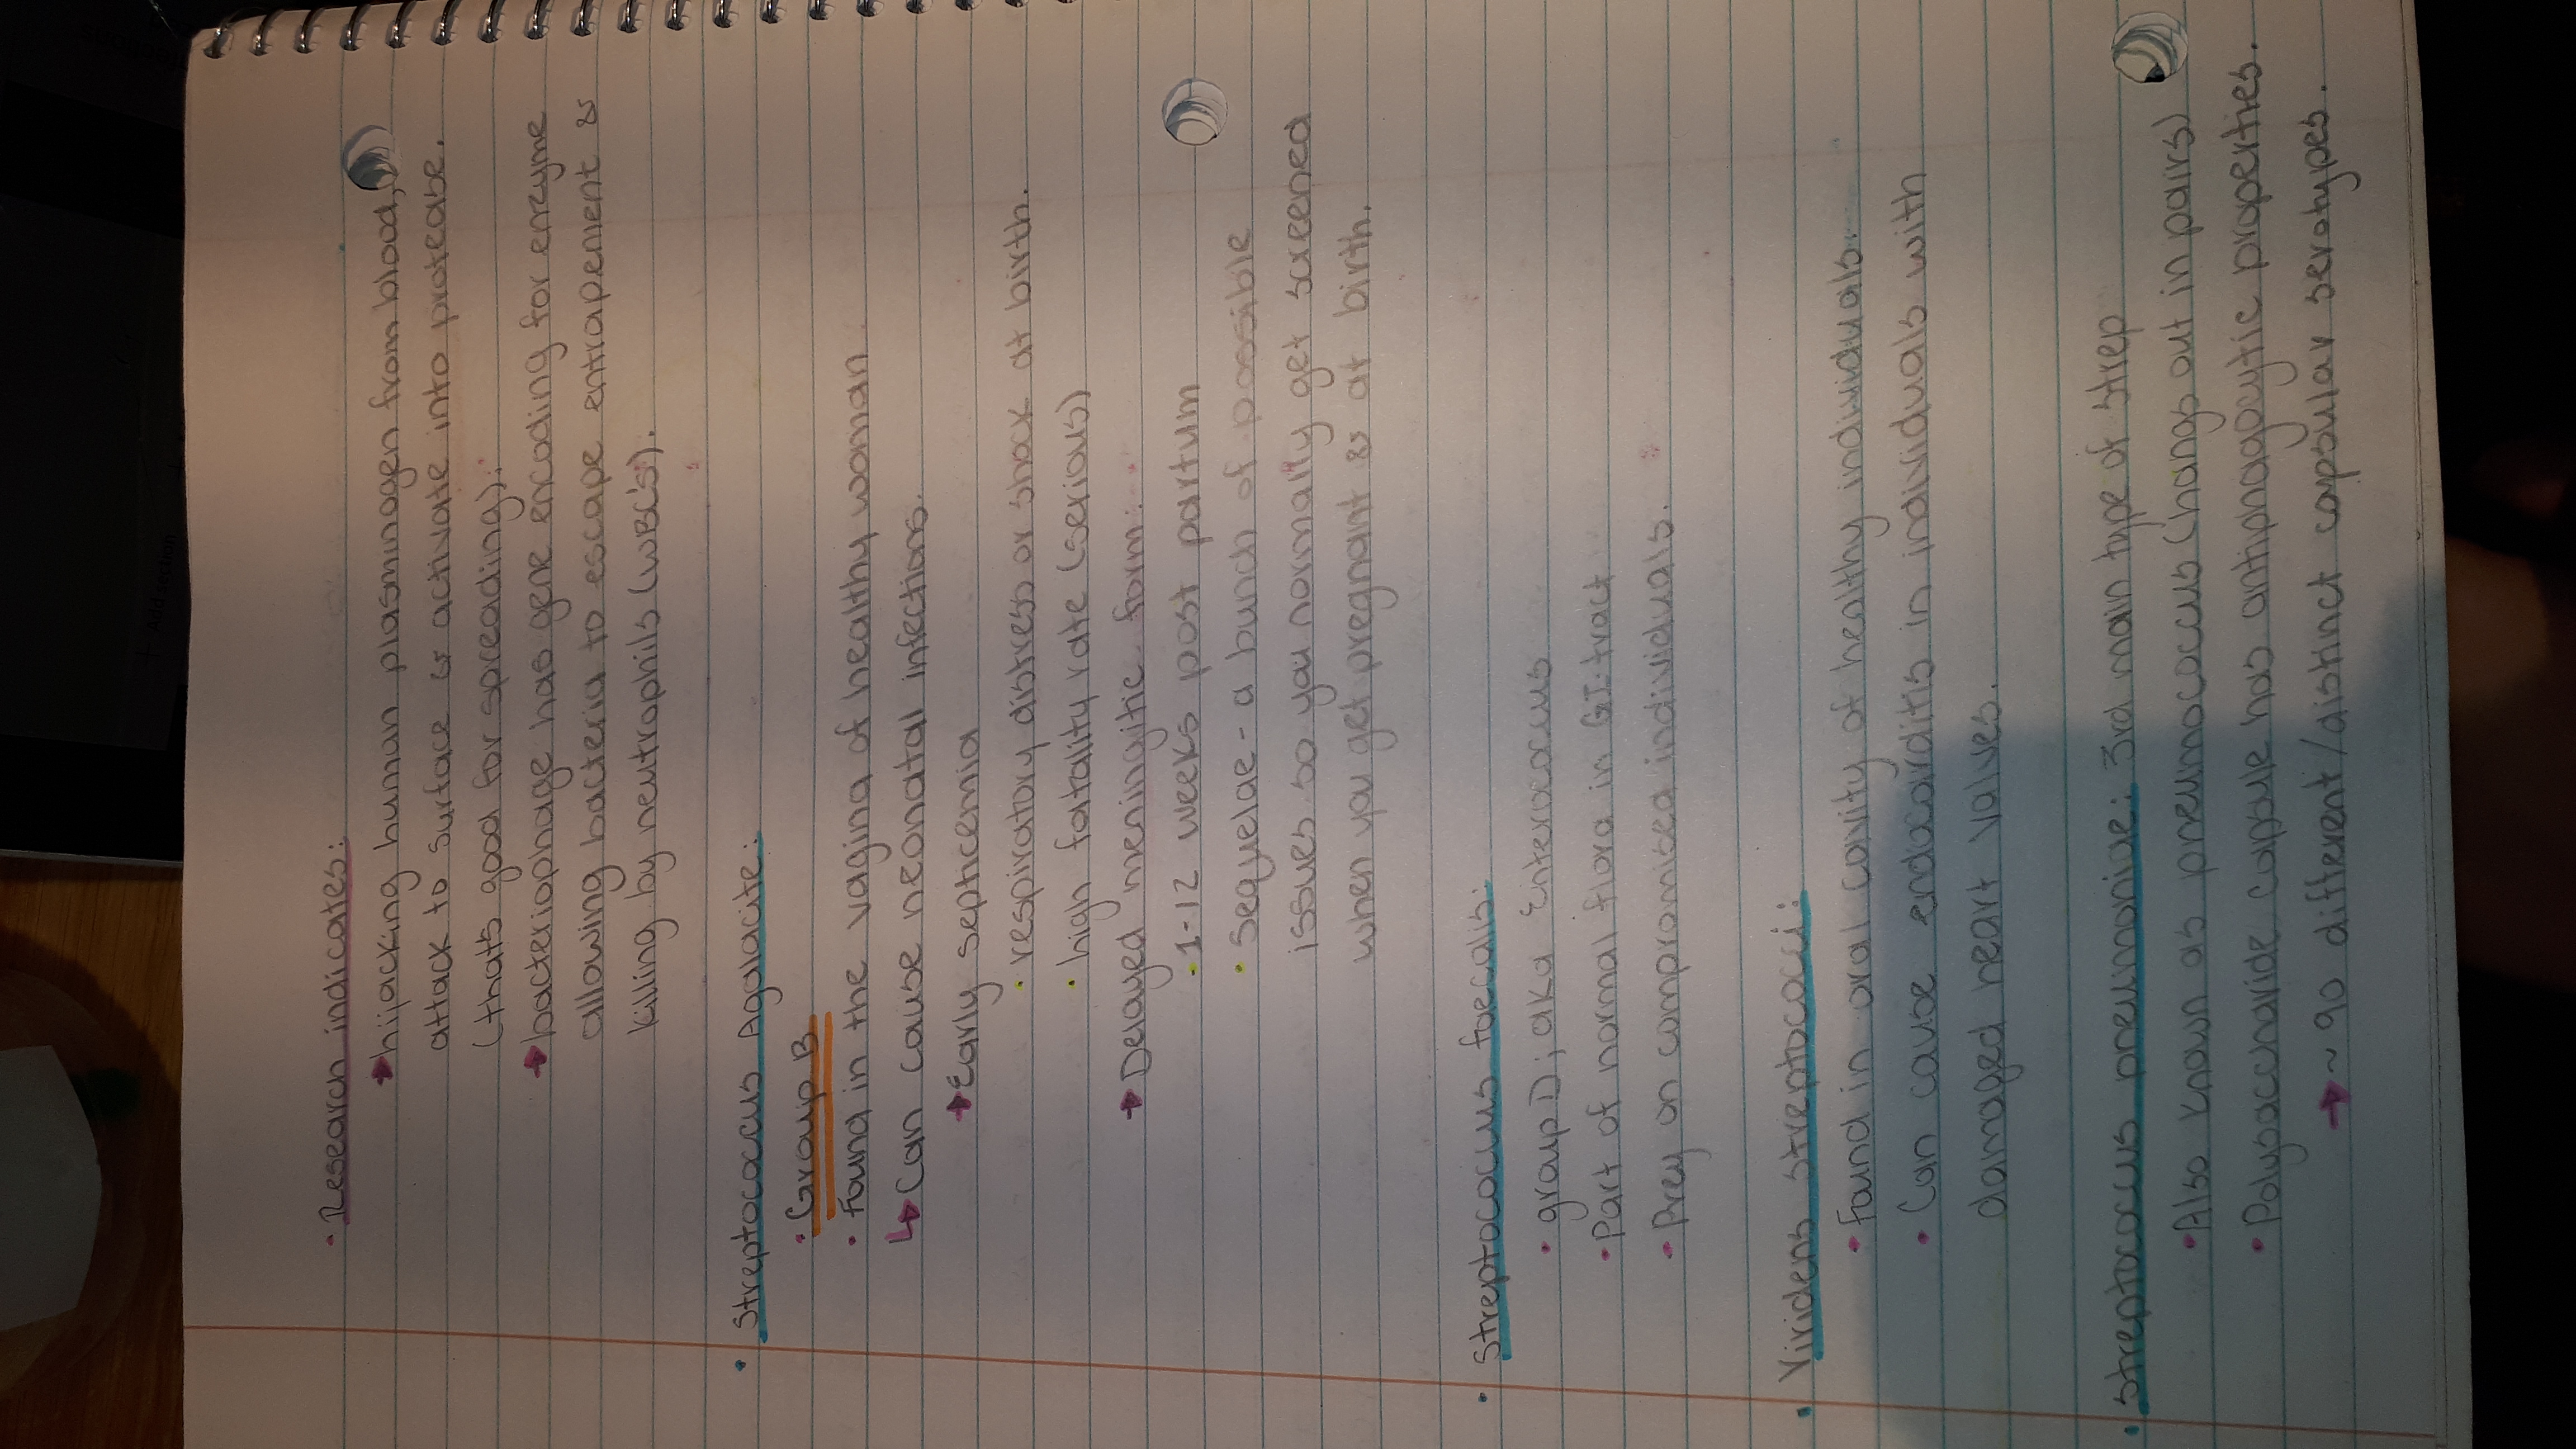 • Research indicates:
→ hijacking human plasminogen from blood,
attack to surface & activate into protease.
(thats good for spreading).
→ bacteriophage has gene encoding for enzyme
allowing bacteria to escape entrapement &
killing by neutrophils (WBC's).
• Streptococcus Agalacite:
• Group B
• Found in the vagina of healthy woman
↳ Can cause neonatal infections.
→ Early septicemia
• respiratory distress or shock at birth.
• high fatality rate (serious)
→ Delayed meningitic form:
• 1-12 weeks post partum
• sequelae - a bunch of possible
issues so you normally get screened
when you get pregnant & at birth.
• Streptococcus faecalis:
• group D; aka Enterococcus
• Part of normal flora in GI tract
• Prey on compromised individuals.
• Viridens streptococci:
• Found in oral cavity of healthy individuals.
• Can cause endocarditis in individuals with
damaged heart valves.
• Streptococcus pneumoniae: 3rd main type of strep
• Also known as pneumococcus (hangs out in pairs)
• Polysaccharide capsule has antiphagocytic properties.
→ ~ 90 different/distinct capsular serotypes.
+ Add section